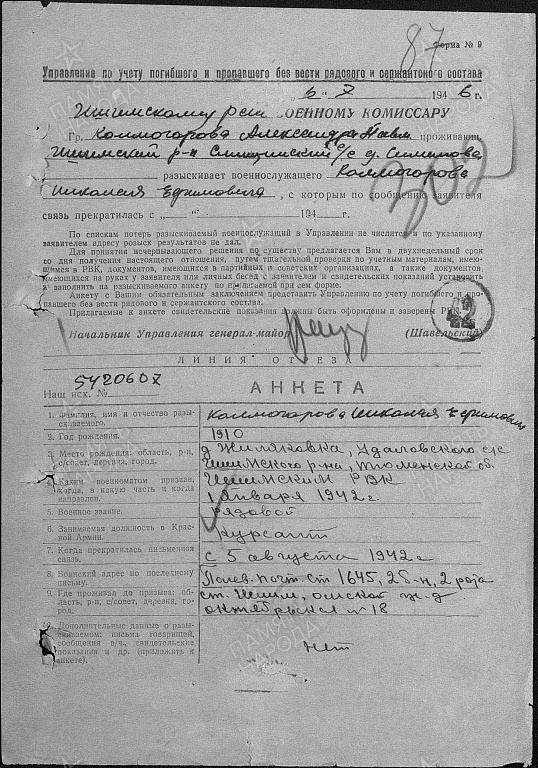 87
Форма № 9
Управление по учету погибшего и пропавшего без вести рядового и сержантского состава
"6" X 1946 г.
Ишимскому рай ВОЕННОМУ КОМИССАРУ
Гр. Колмогорова Александра проживающ.
Ишимский р-н с/с д.
разыскивает военнослужащего Колмогорова
Николая Ефимовича, с которым по сообщению заявителя
связь прекратилась с „ “ 194 г.
302
По спискам потерь разыскиваемый военнослужащий в Управлении не числится и по указанному
заявителем адресу розыск результатов не дал.
Для принятия исчерпывающего решения по существу предлагается Вам в двухнедельный срок
со дня получения настоящего отношения, путем тщательной проверки по учетным материалам, имею-
щимся в РВК, документов, имеющихся в партийных и советских организациях, а также документов,
имеющихся на руках у заявителя или личных бесед с заявителем и свидетельских показаний установить
и заполнить на разыскиваемого анкету по прилагаемой при сем форме.
Анкету с Вашим обязательным заключением представить Управлению по учету погибшего и про-
павшего без вести рядового и сержантского состава.
Прилагаемые к анкете свидетельские показания должны быть оформлены и заверены РВК.
42
Начальник Управления генерал-майор (Шавельский)
ЛИНИЯ ОТРЕЗА
5420607
Наш исх. №
АНКЕТА
1. Фамилия, имя и отчество разы-
скиваемого.
Колмогорова Николая Ефимович
2. Год рождения.
1910
3. Место рождения: область, р-н,
с/совет, деревня, город.
д Жиляковка, Удаловского с/с
Ишимского р-на, Тюменской об.
4. Каким военкоматом призван,
когда, в какую часть и когда
направлен.
Ишимским РВК
1 января 1942 г.
5. Военное звание.
рядовой
6. Занимаемая должность в Крас-
ной Армии.
Курсант
7. Когда прекратилась письменная
связь.
с 5 августа 1942 г
8. Воинский адрес по последнему
письму.
Полев. почт ст 1645, 2 б-н, 2 рота
9. Где проживал до призыва: об-
ласть, р-н, с/совет, деревня, го-
род.
ст. Ишим, омской ж-д
октябрьская № 18
10. Дополнительные данные о разы-
скиваемом: письма товарищей,
сообщения в/ч, свидетельские
показания и др. (приложить к
анкете).
нет
ПАМЯТЬ НАРОДА